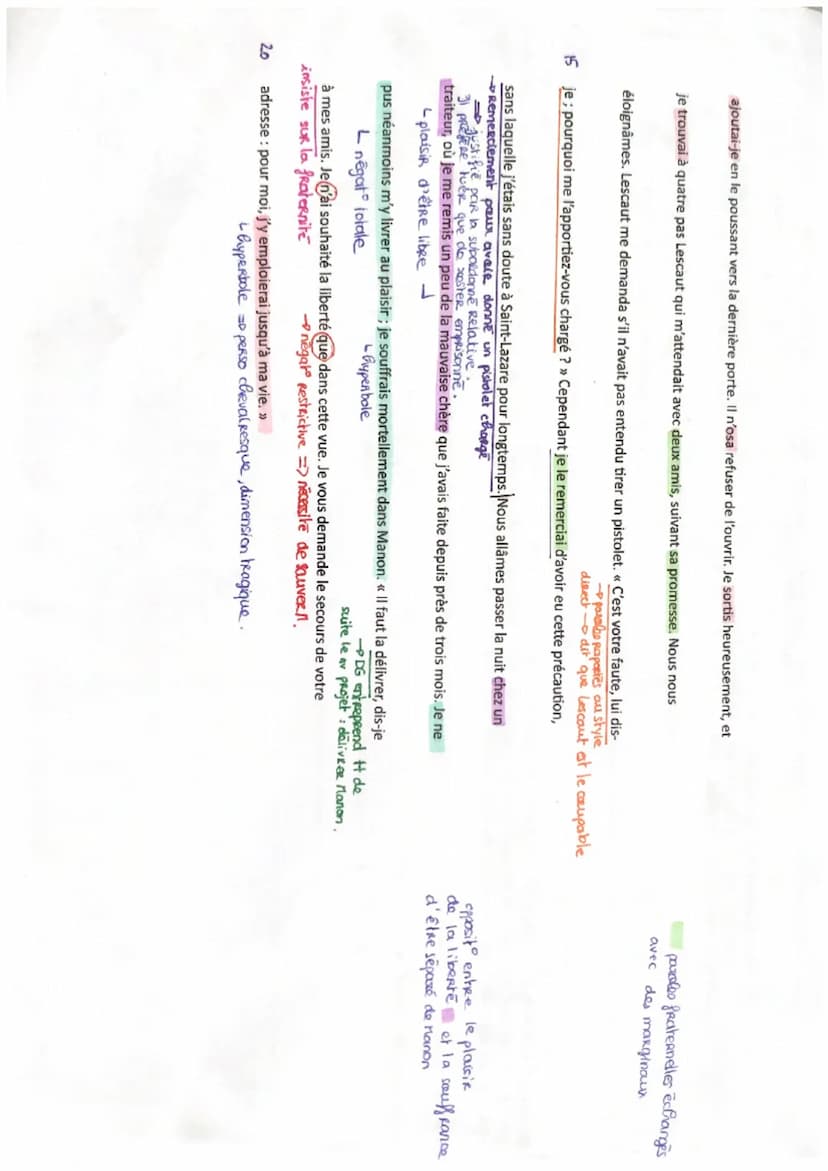 ajoutai-je en le poussant vers la dernière porte. Il n'osa refuser de l'ouvrir. Je sortis heureusement, et
je trouvai à quatre pas Lescaut qui m'attendait avec deux amis, suivant sa promesse. Nous nous
paroles fraternelles échangés
avec des marginaux
éloignâmes. Lescaut me demanda s'il n'avait pas entendu tirer un pistolet. « C'est votre faute, lui dis-
→ paroles rapportés au style
direct → dit que Lescaut est le coupable
15 je ; pourquoi me l'apportiez-vous chargé ? » Cependant je le remerciai d'avoir eu cette précaution,
sans laquelle j'étais sans doute à Saint-Lazare pour longtemps. Nous allâmes passer la nuit chez un
→ Remerciement pour avoir donné un pistolet chargé
⇒ justifié par la subordonné relative.
Il préfère tuer que de rester emprisonné.
traiteur, où je me remis un peu de la mauvaise chère que j'avais faite depuis près de trois mois. Je ne
↳ plaisir d'être libre
opposit° entre le plaisir
de la liberté et la souffrance
d'être séparé de Manon
pus néanmoins m'y livrer au plaisir ; je souffrais mortellement dans Manon. « Il faut la délivrer, dis-je
↳ négat° totale
↳ hyperbole
→ DG entreprend tt de
suite le nv projet : délivrer Manon.
à mes amis. Je n'ai souhaité la liberté que dans cette vue. Je vous demande le secours de votre
insiste sur la fraternité
→ négat° restrictive => nécessité de sauver M.
20 adresse : pour moi, j'y emploierai jusqu'à ma vie. »
↳ hyperbole => perso chevalresque, dimension tragique.